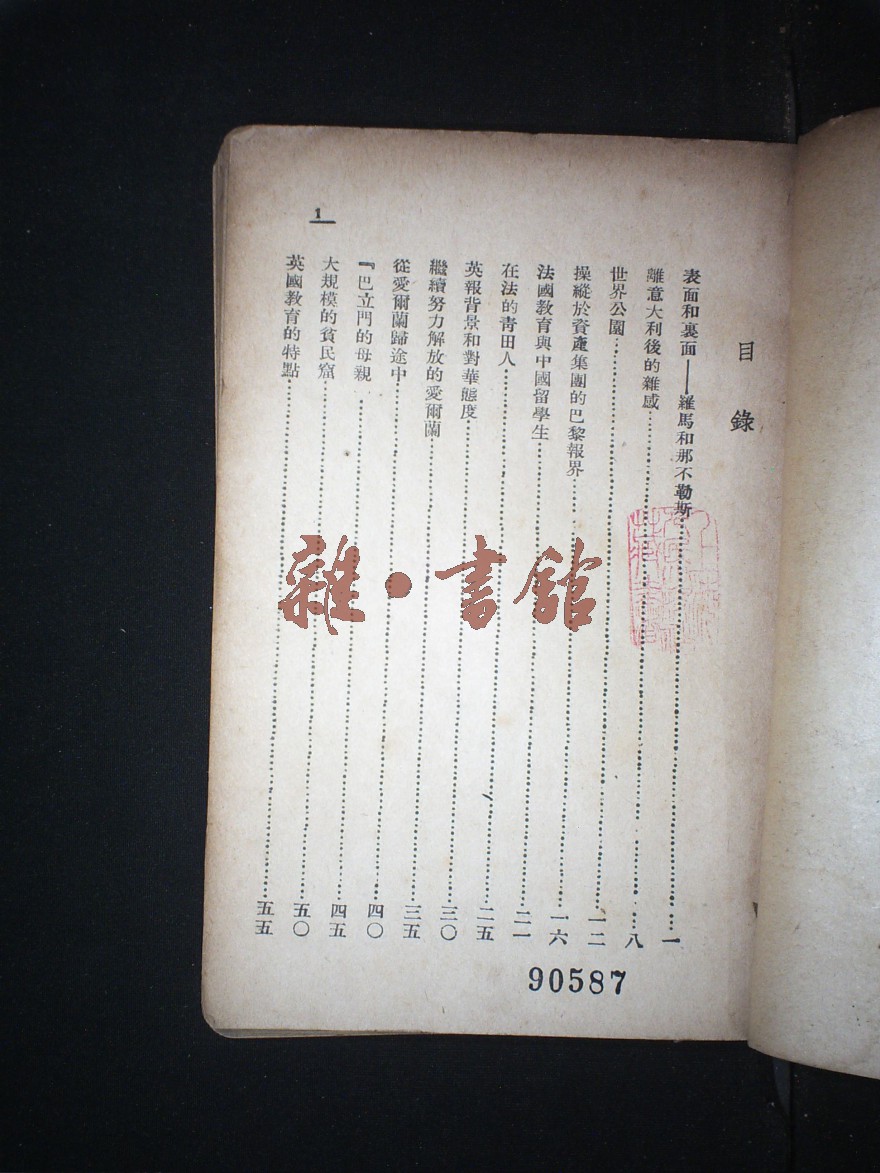 目錄
表面和裏面——羅馬和那不勒斯…………一
離意大利後的雜感…………八
世界公園…………一二
操縱於資產集團的巴黎報界…………一六
法國教育與中國留學生…………二一
在法的青田人…………二五
英報背景和對華態度…………三〇
繼續努力解放的愛爾蘭…………三五
從愛爾蘭歸途中…………四〇
『巴立門的母親…………四五
大規模的貧民窟…………五〇
英國教育的特點…………五五
1
雜·書館
90587